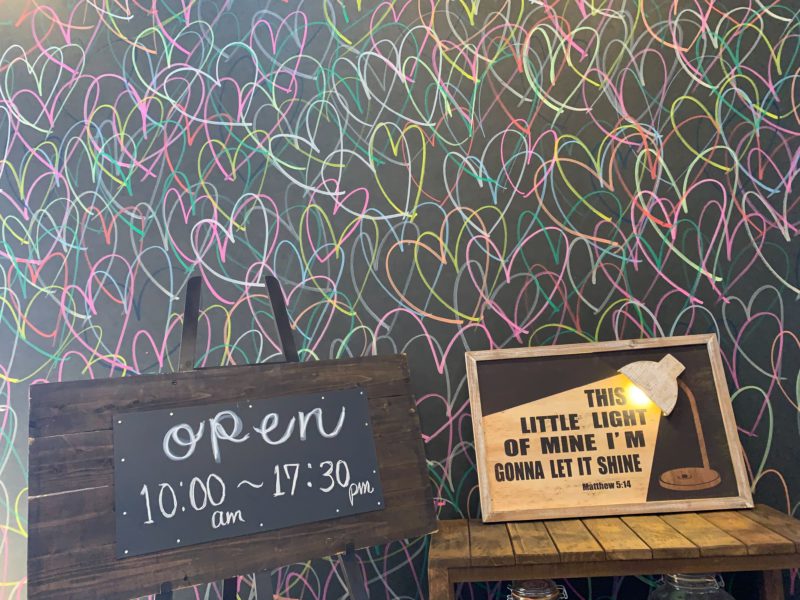 open
10:00 am ~ 17:30 pm
THIS
LITTLE LIGHT
OF MINE I'M
GONNA LET IT SHINE
Matthew 5:14